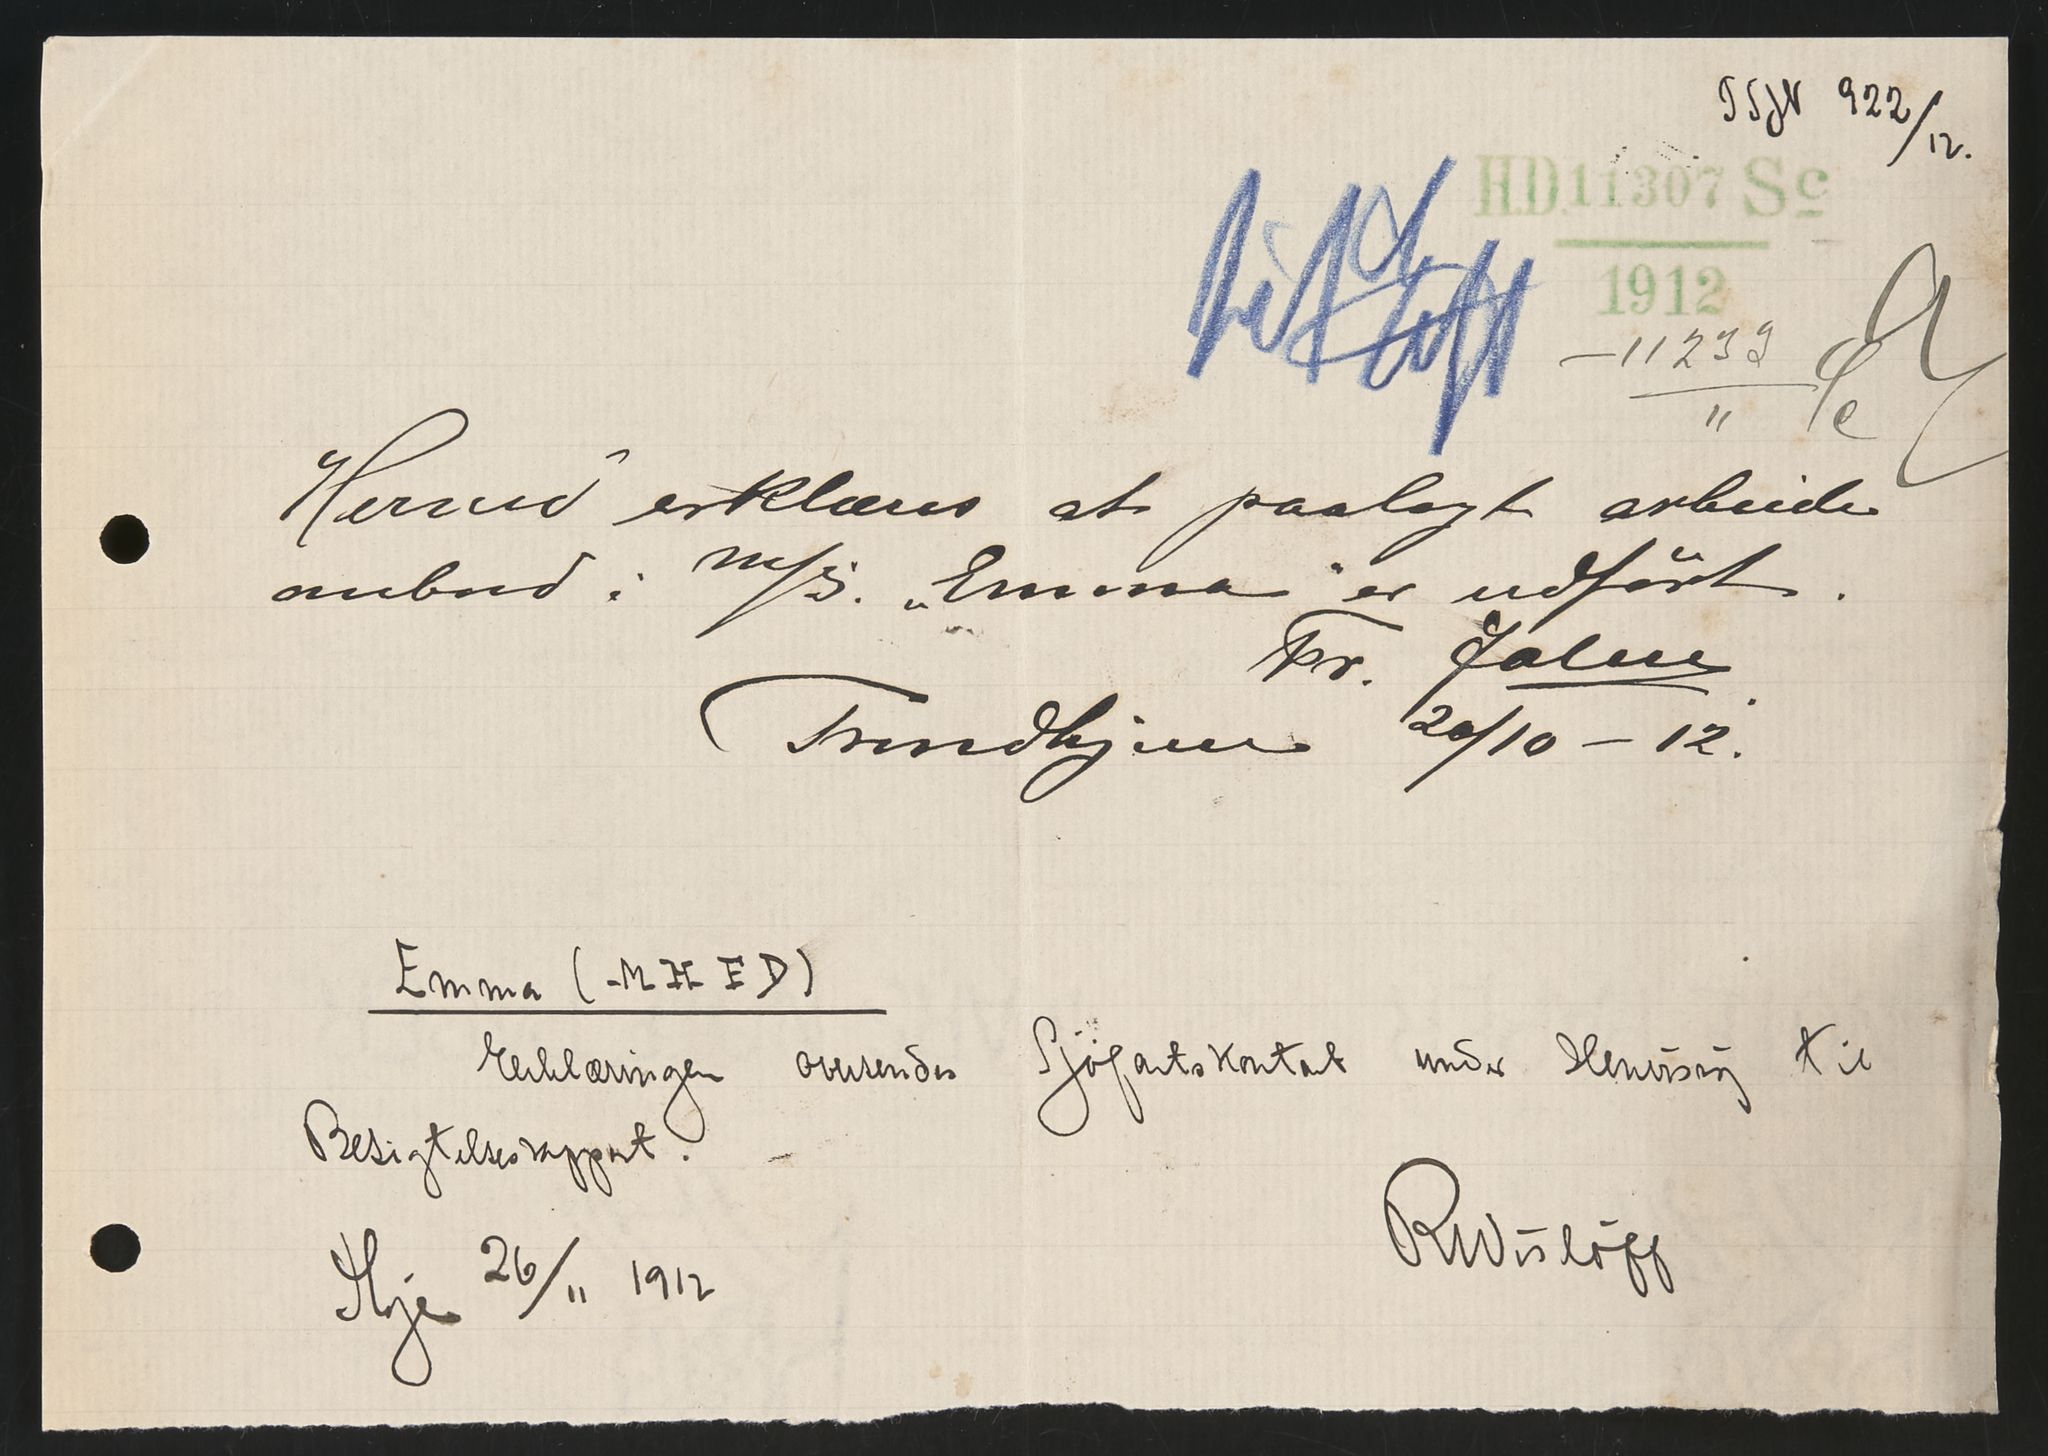 TSJN 922/12.
H.D. 11307 Sc
1912
- 11239
11
Herved erklæres at paalagt arbeide
ombord i m/s. „Emma" er udført.
Fr. Jalme
Trondhjem 20/10 - 12.
Emma (MHFD)
Erklæringen oversendes Sjöfartskontoret under Henvisng til
Besigtelsesrapport.
26/11 1912
RWislöff